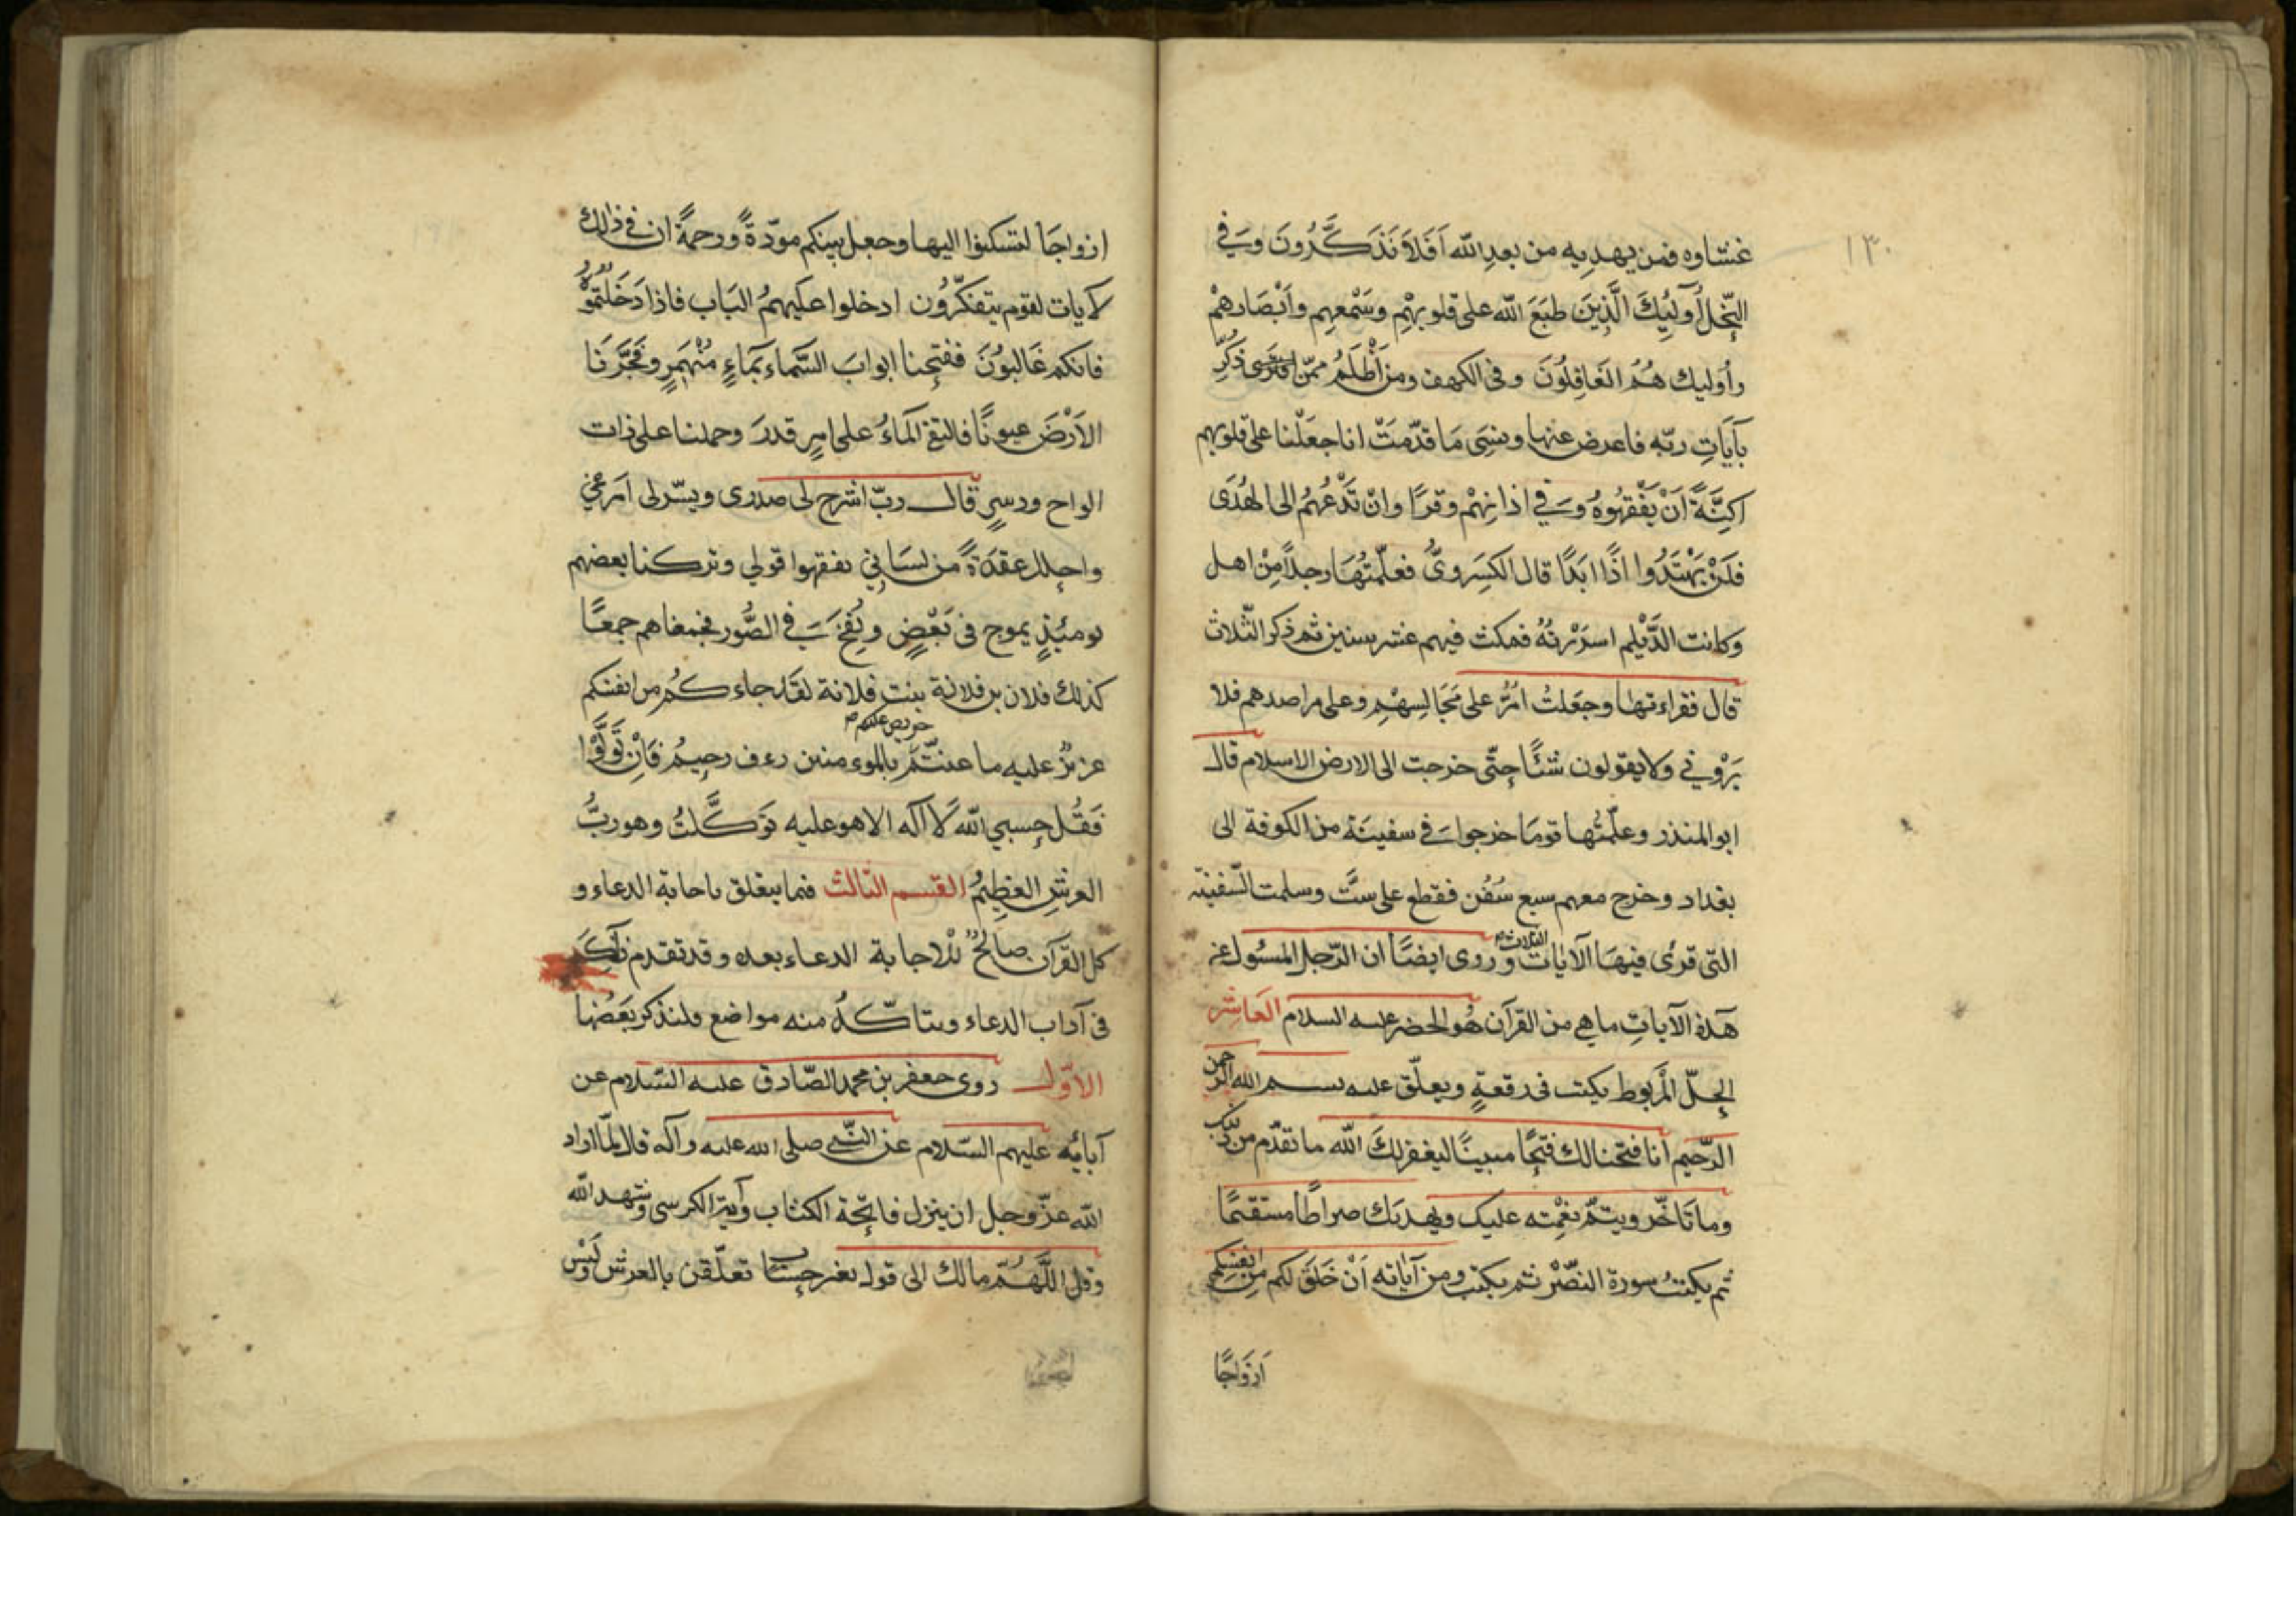 ١٣٠
غشاوه فمن يهديه من بعدِ الله اَفَلاَ تَذَكَّرُونَ وَفي
النّحْل أُولٰئِكَ الَّذِينَ طَبَعَ الله على قلوبهِم وسَمْعِهِم واَبْصَارهمْ
وأُوليك هُمُ الغَافِلُونَ وفى الكهف ومن اَظْلَمُ ممّن ذكِّرَ
بآيَاتِ ربّه فاعرض عنها ونسِىَ مَا قدّمَتْ انا جعَلْنا على قلوبهم
اكِنَّةً اَنْ يَفْقهُوهُ وَفي اذانِهِمْ وقرًا وانْ تَدْعُهُمُ الى الهُدَى
فلَنْ يَهْتَدُوا اذًا ابَدًا قال الكِسَروىُّ فعلّمتُهَا رجلاً مِنْ اهل
وكانت الدَّيْلم اسرَتْهُ فمكث فيهم عشر سنين ثم ذكر الثّلاث
قال فقراءتها وجعَلتُ امُرُّ على مَجَالِسِهْمِ وعلى مراصدهم فلا
يَرَوْني ولا يقولون شئًا حتّى خرجت الى الارض الاسلام قال
ابو المنذر وعلّمتُها قومَا خرجوا فى سفينَة من الكوفة الى
بغداد وخرج معهم سبع سُفُن فقطع على ستَّ وسلمت السَّفينَة
التى قرئ فيهَا الآيات الثلاث وروى ايضًا ان الرّجل المسئول عن
هَذهِ الآياتِ ما هي من القرآن هُو الخضر عليه السلام العَاشِر
لحِلّ المَربوط يكتب فى رقعةٍ ويعلّق عليه بسم الله الرحمن
الرّحيم انا فتحنا لك فتحًا مبينًا ليغفر لكَ الله ما تقدّم من ذنبك
وما تَاخّر ويتمّ نعْمته عليك ويهديَك صراطًا مستقيمًا
ثم يكتبُ سورة النصْر ثم يكتب ومن آياته اَنْ خَلَقَ لكم مِن انفسِكم
اَزوَاجًا
ازواجَا لتسكنوا اليها وجعل بينكم مودّةً ورحمةً ان فى ذلك
لآيات لقوم يتفكّرُون ادخلوا عليهمُ البَاب فاذا دَخَلتمُوهُ
فانكم غَالبُونَ ففتحنا ابوابَ السَّماء بمَاءٍ مُنْهَمِرٍ وفَجَّرنَا
الاَرْضَ عيونًا فالتقى المَاءُ على امرٍ قد قدرَ وحملنا على ذات
الواح ودسرٍ قال ربّ اشرح لى صدرى ويسّر لى امَرى
واحلل عقدَةً من لسَانِي يفقهوا قولي وتركنا بعضهم
يومَئذٍ يموج فى بَعْضٍ ونُفِخَ في الصُّور فجمعناهم جمعًا
كذلك فلان بن فلانة بنت فلانة لقَد جاءكُم من انفسكم
حريص عليكم
عزيزٌ عليه ما عنتُّمْ بالموءمنين رءف رحيمُ فَاِنْ تَولَّوْا
فَقُل حسبي الله لاَ اله الا هو عليه تَوكَّلتُ وهو ربُّ
العرشِ العَظِيمُ القسم الثالث فيما يتعلق باجابة الدعاء و
كل القرآن صالحٌ للاجابة الدعاء بعده وقد تقدم ذلك
فى آداب الدعاء ويتاكّدُ منه مواضع ولنذكر بَعْضُها
الاوّل روى جعفر بن محمد الصّادق عليه السّلام عن
آبائِه عليهم السّلام عن النّبي صلى الله عليه وآله قال لمّا اراد
الله عزّ وجل ان ينزل فاتحة الكتاب وآية الكرسى وشهد الله
وقل اللَّهُمّ مالك الى قوله بغير حساب تعلّقن بالعرش وليْس